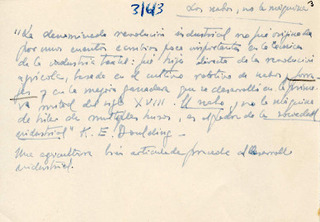 3/43
Los nabos, no la máquina
3
"La denominada revolución industrial no fue originada
por unos cuantos cambios poco importantes en la técnica
de la industria textil: fue hija directa de la revolución
agrícola, basada en el cultivo rotativo de nabos,
y en la mejor ganadera que se desarrolló en la prime-
ra mitad del siglo XVIII. El nabo, y no la máquina
de hilar de múltiples husos, es el padre de la sociedad
industrial" K. E. Boulding -
Una agricultura bien articulada precede al desarrollo
industrial.